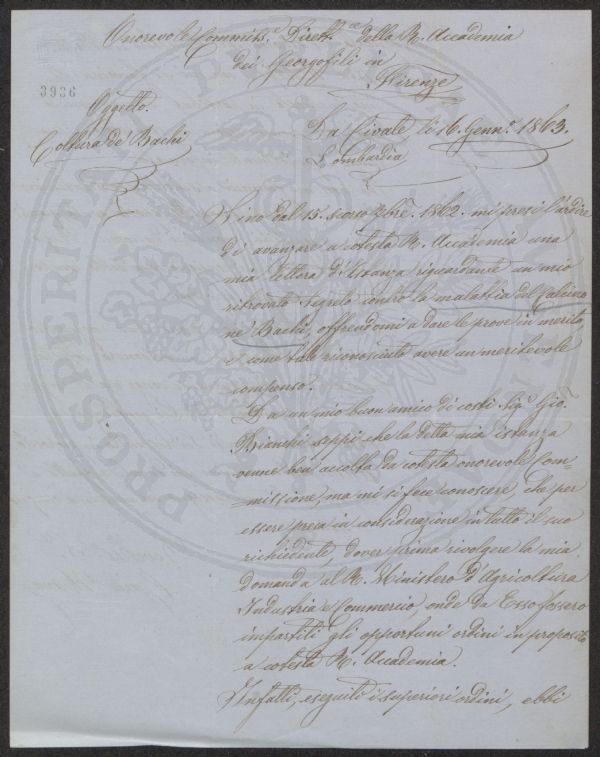 Onorevole Commiss.e Dirett.ce della R. Accademia
dei Georgofili in
Firenze
3936
Oggetto.
Coltura de' Bachi
Da Civate li 16. Genn.o 1863.
Lombardia
Fino dal 15. scorso Xbre. 1862. mi presi l'ardire
di avanzare a cotesta R. Accademia una
mia lettera d'Istanza riguardante un mio
ritrovato segreto contro la malattia del Calcino
ne' Bachi, offrendomi a dare le prove in merito,
e come tale riconosciuto avere un meritevole
compenso.
Da un mio buon amico di costì Sig.r Gio.
Bianchi seppi che la detta mia istanza
venne ben accolta da cotesta onorevole Com=
=missione, ma mi si fece conoscere, che per
essere presa in considerazione in tutto il suo
richiedente, dover prima rivolgere la mia
domanda al R. Ministero d'Agricoltura
Industria e Commercio, onde da Esso fossero
impartiti gli opportuni ordini in proposito
a cotesta R. Accademia.
Infatti, eseguiti i superiori ordini, ebbi
PROSPERITATI